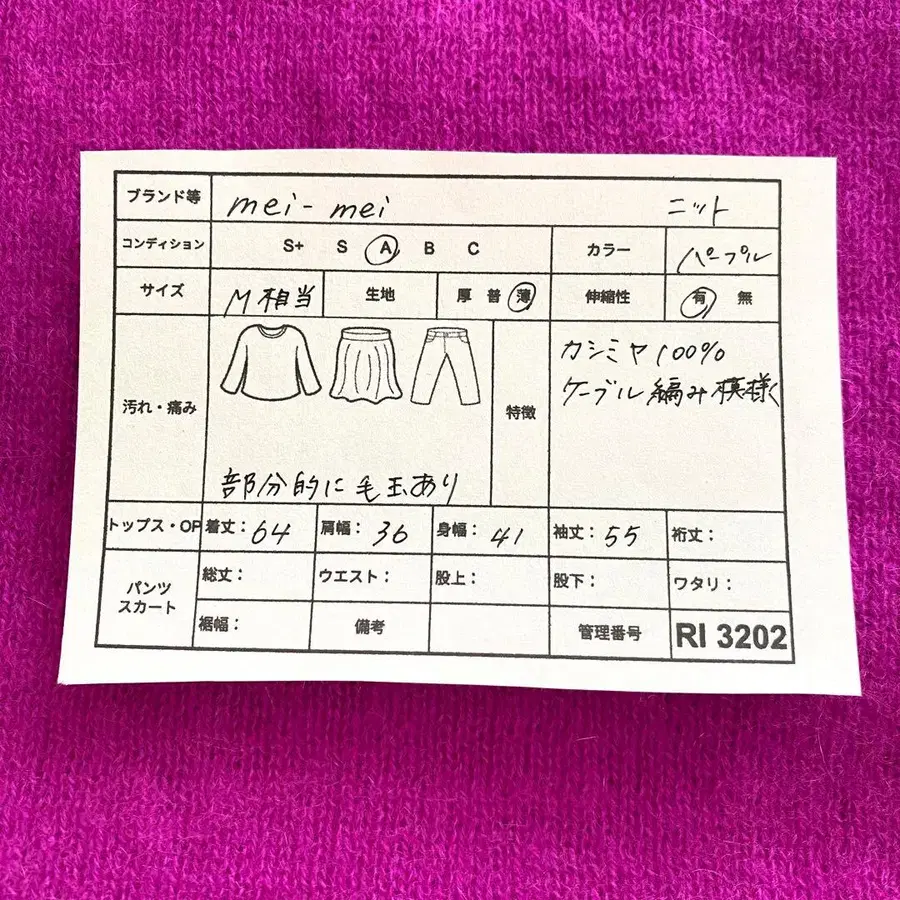 ブランド等 mei-mei ニット
コンディション S+ S A B C カラー パープル
サイズ M相当 生地 厚 普 薄 伸縮性 有 無
汚れ・痛み 部分的に毛玉あり
特徴 カシミヤ100%
ケーブル編み模様
トップス・OP 着丈：64 肩幅：36 身幅：41 袖丈：55 裄丈：
パンツ
スカート
総丈： ウエスト： 股上： 股下： ワタリ：
裾幅： 備考 管理番号 RI 3202